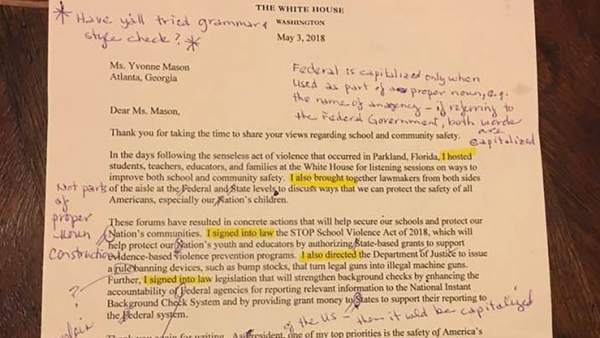 THE WHITE HOUSE
* Have y'all tried grammar &
style check? *
WASHINGTON
May 3, 2018
Ms. Yvonne Mason
Atlanta, Georgia
Federal is capitalized only when
used as part of a proper noun, e.g.
the name of an agency - if referring to
the Federal Government, both words
are
capitalized
Dear Ms. Mason,
Thank you for taking the time to share your views regarding school and community safety.
In the days following the senseless act of violence that occurred in Parkland, Florida, I hosted
students, teachers, educators, and families at the White House for listening sessions on ways to
improve both school and community safety. I also brought together lawmakers from both sides
of the aisle at the Federal and State levels to discuss ways that we can protect the safety of all
Americans, especially our Nation's children.
Not parts
of
proper
noun
construction
These forums have resulted in concrete actions that will help secure our schools and protect our
Nation's communities. I signed into law the STOP School Violence Act of 2018, which will
help protect our Nation's youth and educators by authorizing State-based grants to support
evidence-based violence prevention programs. I also directed the Department of Justice to issue
a rule banning devices, such as bump stocks, that turn legal guns into illegal machine guns.
Further, I signed into law legislation that will strengthen background checks by enhancing the
accountability of Federal agencies for reporting relevant information to the National Instant
Background Check System and by providing grant money to States to support their reporting to
the Federal system.
?
of the US - then it would be capitalized
Thank you again for writing. As President, one of my top priorities is the safety of America's